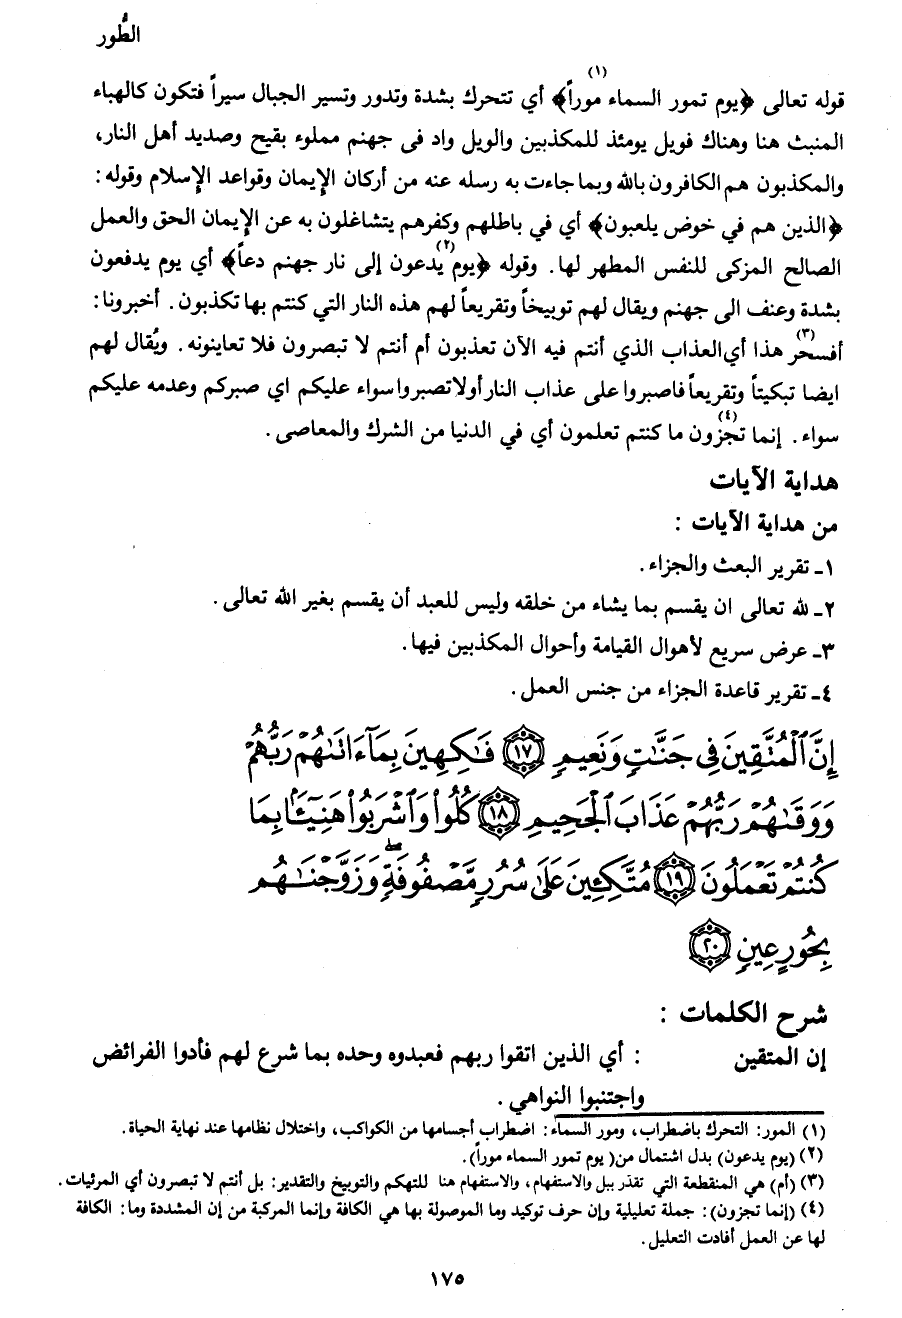 الطُّور
قوله تعالى ﴿يوم تمور السماء موراً﴾(١) أي تتحرك بشدة وتدور وتسير الجبال سيراً فتكون كالهباء
المنبث هنا وهناك فويل يومئذ للمكذبين والويل واد فى جهنم مملوء بقيح وصديد أهل النار،
والمكذبون هم الكافرون بالله وبما جاءت به رسله عنه من أركان الإيمان وقواعد الإسلام وقوله :
﴿الذين هم في خوض يلعبون﴾ أي في باطلهم وكفرهم يتشاغلون به عن الإيمان الحق والعمل
الصالح المزكى للنفس المطهر لها. وقوله ﴿يوم يدعون(٢) إلى نار جهنم دعاً﴾ أي يوم يدفعون
بشدة وعنف الى جهنم ويقال لهم توبيخاً وتقريعاً لهم هذه النار التي كنتم بها تكذبون. أخبرونا :
أفسحر(٣) هذا أي العذاب الذي أنتم فيه الآن تعذبون أم أنتم لا تبصرون فلا تعاينونه. ويُقال لهم
ايضا تبكيتاً وتقريعاً فاصبروا على عذاب النار أولا تصبروا سواء عليكم اي صبركم وعدمه عليكم
سواء. إنما تجزون(٤) ما كنتم تعلمون أي في الدنيا من الشرك والمعاصى.
هداية الآيات
من هداية الآيات :
١ـ تقرير البعث والجزاء.
٢ـ لله تعالى ان يقسم بما يشاء من خلقه وليس للعبد أن يقسم بغير الله تعالى.
٣ـ عرض سريع لأهوال القيامة وأحوال المكذبين فيها.
٤ـ تقرير قاعدة الجزاء من جنس العمل.
إِنَّ ٱلْمُتَّقِينَ فِى جَنَّـٰتٍ وَنَعِيمٍ ١٧ فَـٰكِهِينَ بِمَآ ءَاتَىٰهُمْ رَبُّهُمْ
وَوَقَىٰهُمْ رَبُّهُمْ عَذَابَ ٱلْجَحِيمِ ١٨ كُلُوا۟ وَٱشْرَبُوا۟ هَنِيٓـًٔۢا بِمَا
كُنتُمْ تَعْمَلُونَ ١٩ مُتَّكِـِٔينَ عَلَىٰ سُرُرٍ مَّصْفُوفَةٍ ۖ وَزَوَّجْنَـٰهُم
بِحُورٍ عِينٍ ٢٠
شرح الكلمات :
إن المتقين : أي الذين اتقوا ربهم فعبدوه وحده بما شرع لهم فأدوا الفرائض
واجتنبوا النواهي.
(١) المور: التحرك باضطراب، ومور السماء: اضطراب أجسامها من الكواكب، واختلال نظامها عند نهاية الحياة.
(٢) (يوم يدعون) بدل اشتمال من( يوم تمور السماء موراً).
(٣) (أم) هي المنقطعة التي تقدّر ببل والاستفهام، والاستفهام هنا للتهكم والتوبيخ والتقدير: بل أنتم لا تبصرون أي المرئيات.
(٤) (إنما تجزون): جملة تعليلية وإن حرف توكيد وما الموصولة بها هي الكافة وإنما المركبة من إن المشددة وما: الكافة
لها عن العمل أفادت التعليل.
١٧٥